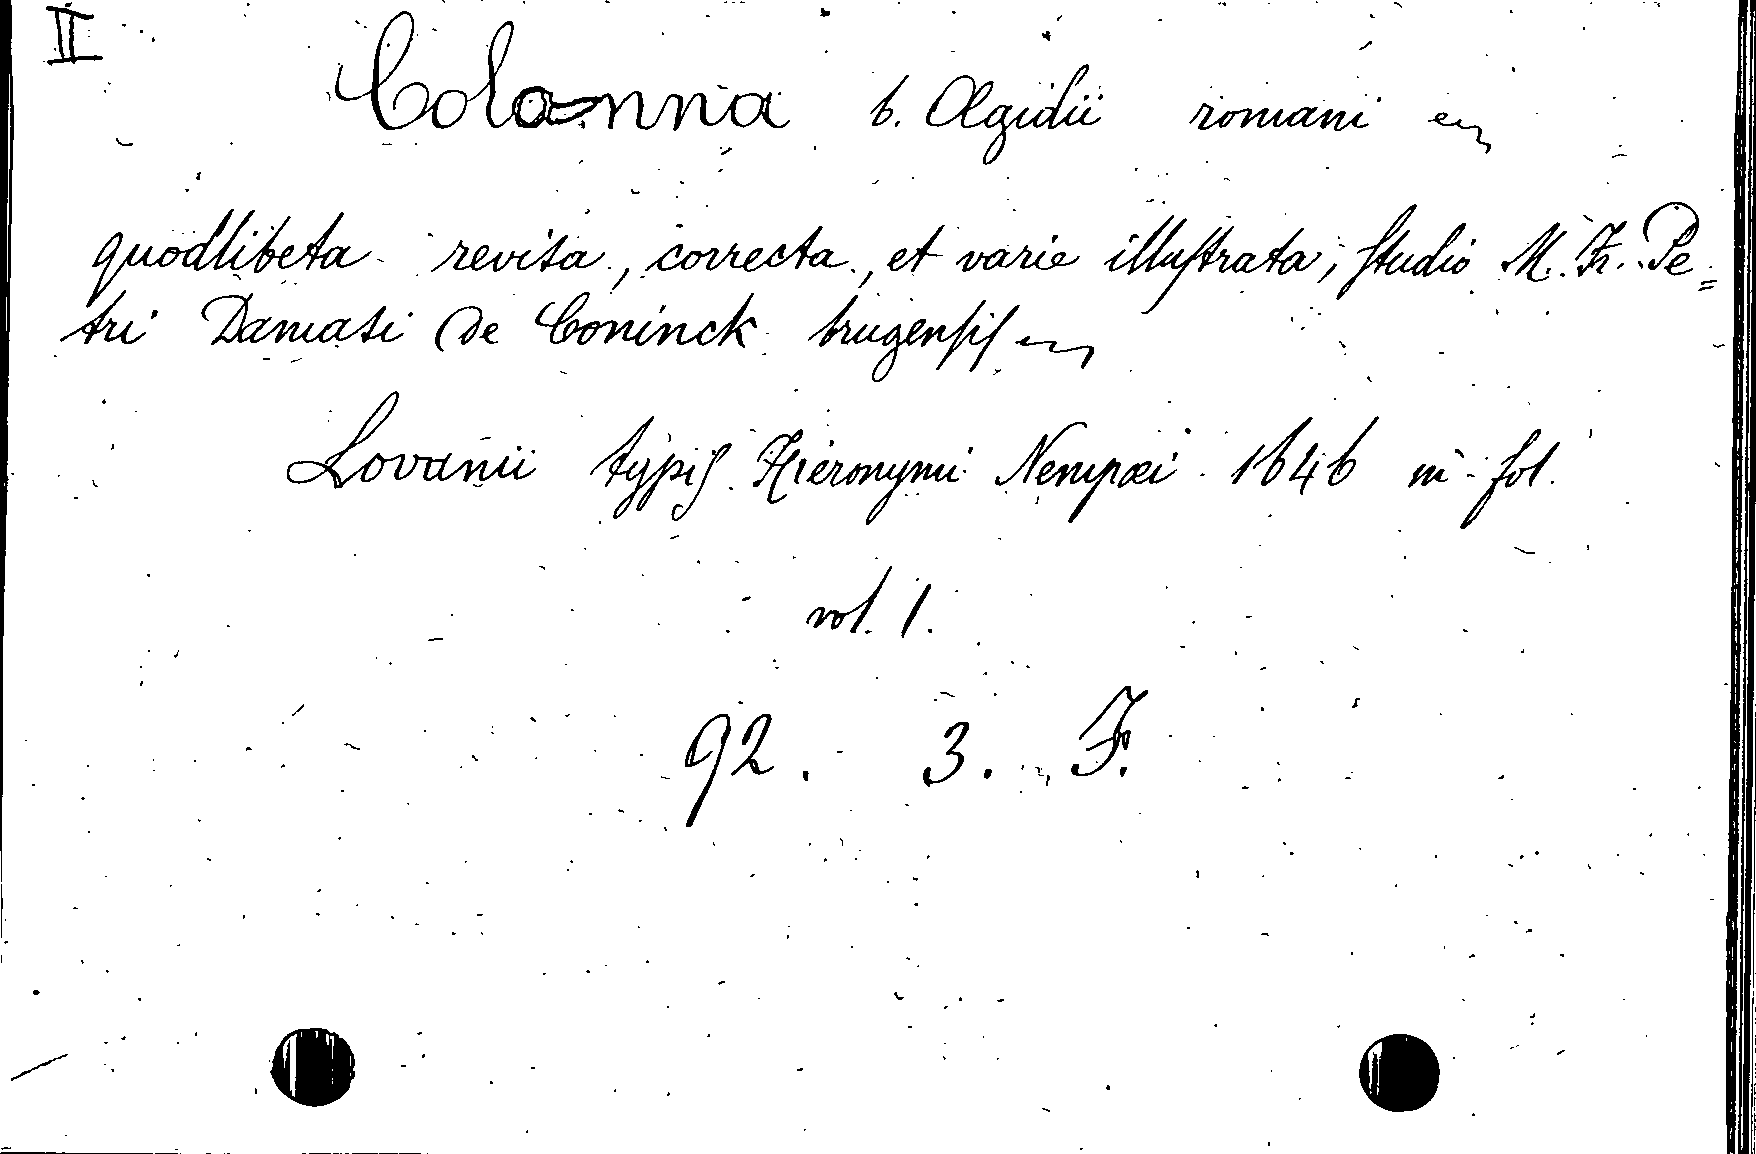 II
Colonna b. Ægidii romani
quodlibeta revisa, correcta, et varie illuſtrata, ſtudio M. Fr. Pe=
tri Damasi de Coninck brugenſiſ
Lovanii typiſ Hieronymi Nempæi 1646 in fol.
vol. 1.
92. 3. F.